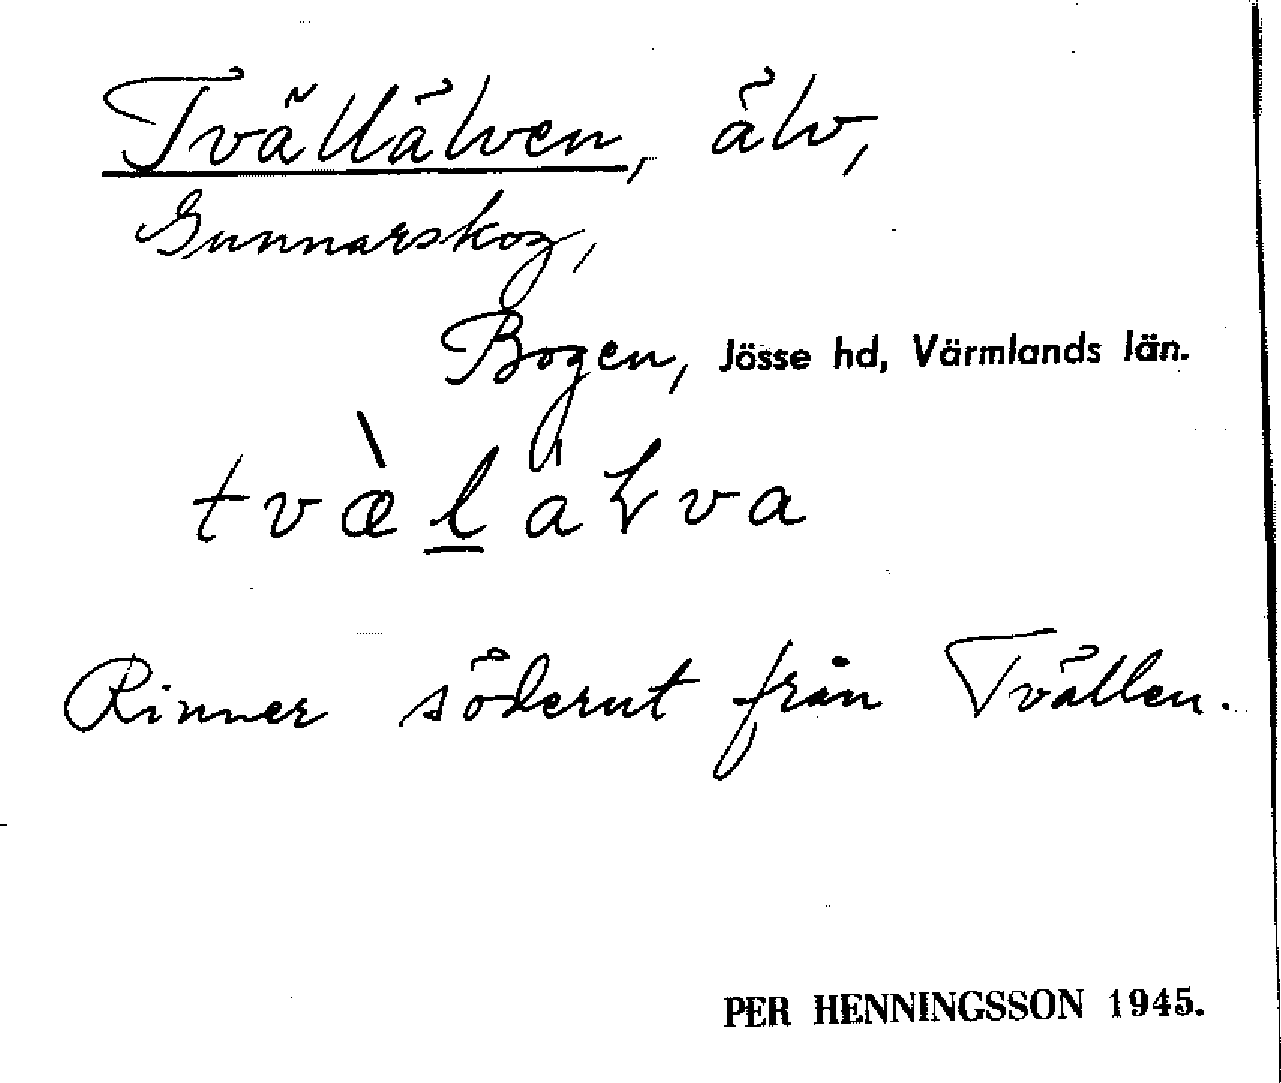 Tvällälven, älv,
Gunnarskog,
Bogen, Jösse hd, Värmlands län.
tvæ̀l̲äɫva
Rinner söderut från Tvällen.
PER HENNINGSSON 1945.